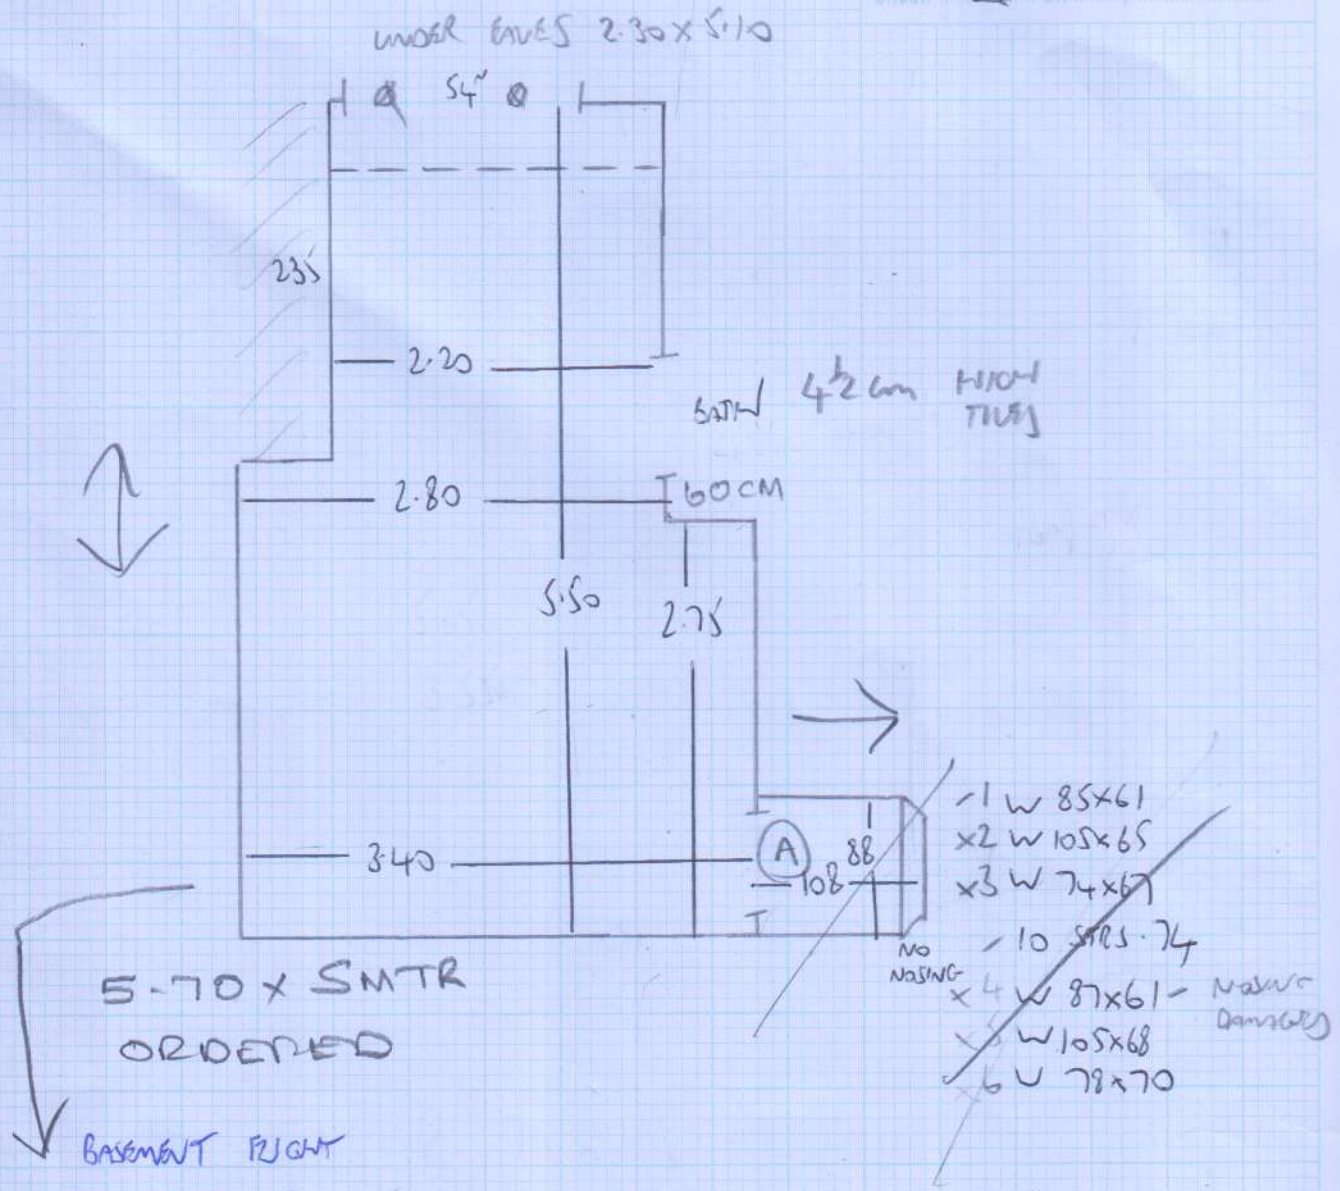 UNDER EAVES 2.30 X 5.10
54"
235
2.20
BATH 4½ cm HIGH
TILES
2.80
60CM
5.50
2.75
3.40
A
88
108
NO
NOSING
-1 W 85X61
X2 W 105X65
X3 W 74X67
-10 STRS. 74
X4 W 87X61 - NOSING
DAMAGED
X5 W 105X68
X6 W 78X70
5.70 X 5MTR
ORDERED
BASEMENT FLIGHT